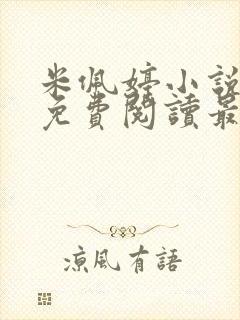 米佩婷小說
免費閱讀最
涼風有語